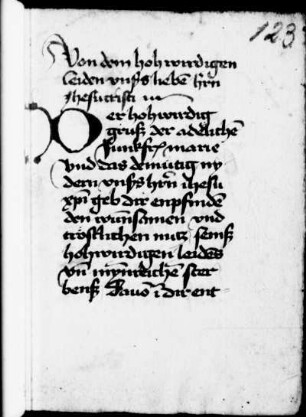 123
Von dem hohwirdigen
leiden vnsʒs lieben hrn
Jhesu cristi
Der hohwirdig
gruß der adelichē
Junkfr̄ marie
vnd das demutig ny
dern vnsʒs hrn ihesu
xp̄i geb dir enpfinden
den wunsamen vnd
trostlichen nutz seinß
hohwirdigen leidēs
vn̄ mynreichē ster
benß Dauō i dir ent